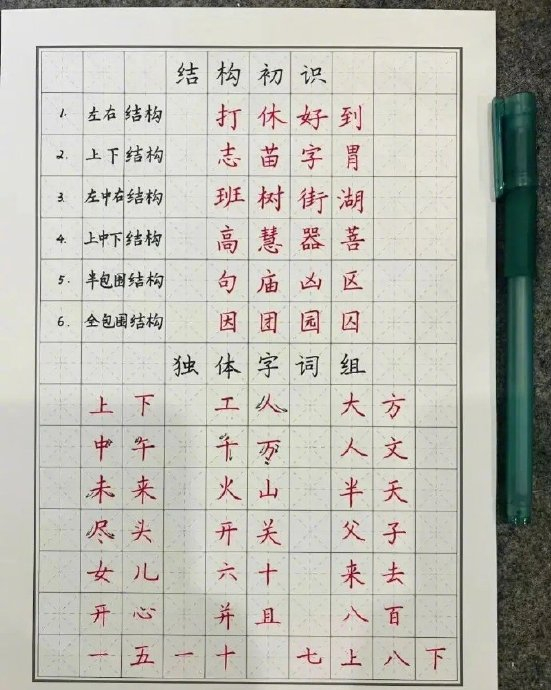 结构初识
1. 左右结构 打休好到
2. 上下结构 志苗字胃
3. 左中右结构 班树街湖
4. 上中下结构 高慧器菩
5. 半包围结构 句庙凶区
6. 全包围结构 因团园囚
独体字词组
上下 工人 大方
中午 千万 人文
未来 火山 半天
尽头 开关 父子
女儿 六十 来去
开心 并且 八百
一五一十 七上八下